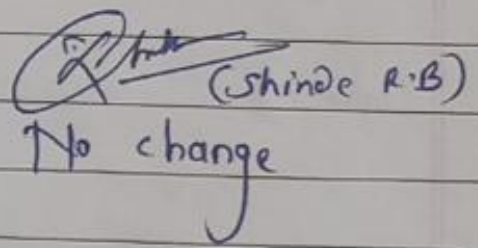 (Shinde R.B)
No change